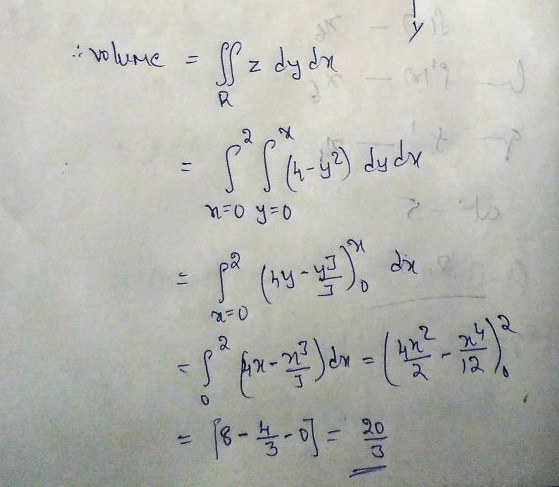 y
∴ volume = ∬_R z dy dx
= ∫_{x=0}^{2} ∫_{y=0}^{x} (4-y²) dy dx
= ∫_{x=0}^{2} (4y - y³/3)_0^x dx
= ∫_0^2 (4x - x³/3) dx = (4x²/2 - x⁴/12)_0^2
= [8 - 4/3 - 0] = 20/3